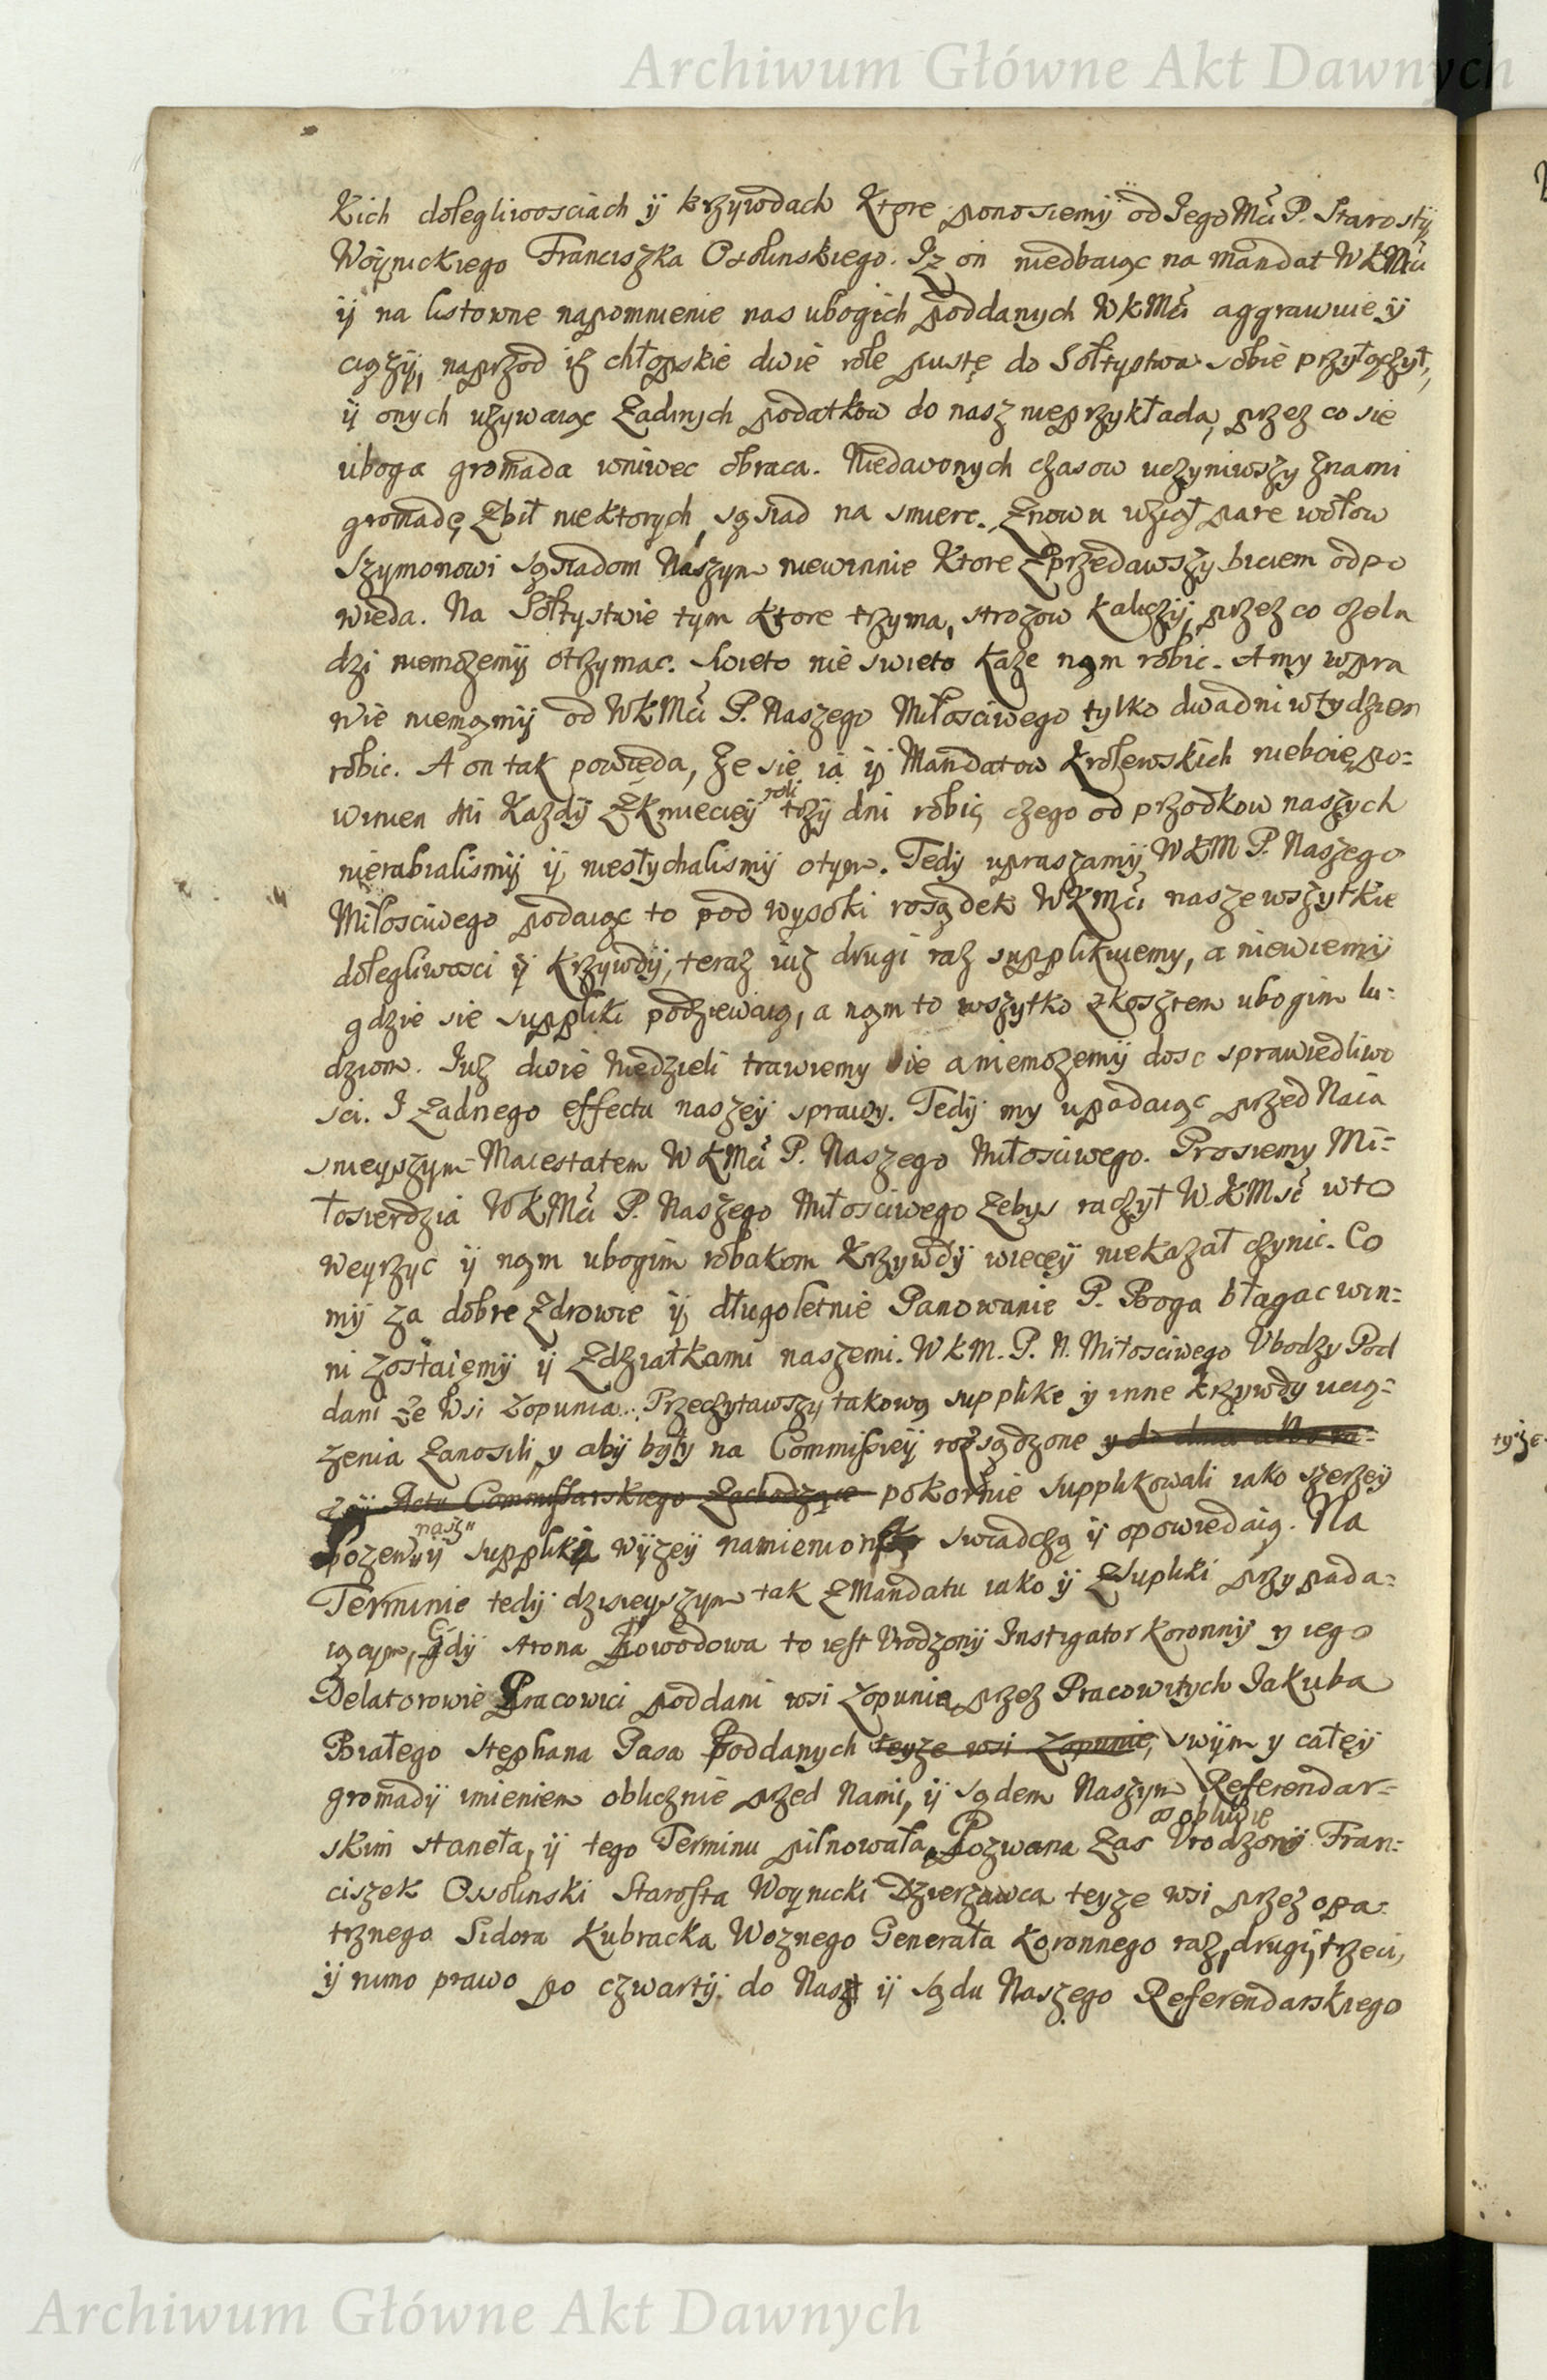 Archiwum Główne Akt Dawnych
Kich dolegliwosciach ÿ krzywdach Ktore ponosiemÿ od Jego Mći P. Starostÿ
Woynickiego Franciszka Ossolinskiego. Iz on niedbaiąc na mandat WKMći
ÿ na listowne napomnienie nas ubogich poddanych WKMći aggrawuie ÿ
ciązÿ, naprzod iz chłopskie dwie role pustę do Sołtystwa sobie przyłączył,
ÿ onych uzywaiąc Zadnych podatkow do nasz nieprzykłada, przez co sie
uboga gromada wniwec obraca. Niedawnych czasow uczyniwszy znami
gromadę Zbił niektorych sąsiad na smierc. Znowu wziął pare wołow
Szymonowi sąsiadom Naszym niewinnie Ktore Zprzedawszy biciem odpo
wieda. Na Sołtystwie tym Ktore trzyma, strozow kaliczÿ, przez co czela
dzi niemozemÿ otrzymac. Swieto nie swieto kaze nąm robic. A my wpra
wie niemąmÿ od WKMći P. Naszego Miłosciwego tylko dwa dni w tydzien
robic. A on tak powieda, ze sie ia ÿ Mandatow Krolewskich nieboię, po=
winien mi Kazdÿ Zkmieciey roli trzÿ dni robic, czego od przodkow naszych
nierabialismÿ ÿ niesłychalismÿ otym. Tedÿ upraszamÿ WKM P. Naszego
Miłosciwego podaiąc to pod wysoki rosądek WKMći nasze wszytkie
dolegliwosci ÿ Krzywdÿ, teraz iuz drugi raz supplikuiemy, a niewiemÿ
gdzie sie suppliki podziewaią, a nąm to wszytko z kosztem ubogim lu=
dziom. Iuz dwie Niedzieli trawiemy sie a niemozemÿ dosc sprawiedliwo
sci. I Zadnego effectu naszeÿ sprawy. Tedÿ my upadaiąc przed Naia
snieyszym Maiestatem WKMći P. Naszego Miłosciwego. Prosiemy Mi=
łosierdzia WKMći P. Naszego Miłosciwego zebys raczył W.KMsć wto
weyrzyc ÿ nąm ubogim robakom Krzywdÿ wieceÿ niekazał czynic. Co
mÿ za dobre Zdrowie ÿ długoletnie Panowanie P. Boga błagac win=
ni zostaiemÿ ÿ Zdziatkami naszemi. WKM. P. N. Miłosciwego Vbodzy Pod
dani Ze Wsi Łopunia. Przeczytawszy takową supplike ÿ inne krzywdy ucią=
zenia Zanosili, y abÿ były na Commissieÿ rozsądzone y do dnia
Actu Commissarskiego Zachodzące pokornie supplikowali iako szerzeÿ
pozew nasz suppliką wÿzeÿ swiadczą ÿ opowiedaią. Na
Terminie tedÿ dzisieyszym tak Z Mandatu iako ÿ Z Supliki przypada=
iącym, Gdÿ strona Powodowa to iest Vrodzonÿ Instigator Koronnÿ y iego
Delatorowie Pracowici poddani wsi Łopunia przez Pracowitych Iakuba
Białego Stephana Pasa Poddanych teyze wsi Łopunie, swÿm y całeÿ
gromadÿ imieniem oblicznie przed Nami, ÿ sądem Naszym Referendar=
skim staneła, ÿ tego Terminu pilnowała, Pozwana Zas Vrodzony Fran=
ciszek Ossolinski Starosta Woynicki Dzierzawca teyze wsi przez opa=
trznego Sidora Kubracka Woznego Generała Koronnego raz, drugi, trzeci,
ÿ mimo prawo po czwartÿ do Nas ÿ Sądu Naszego Referendarskiego
tyze
Archiwum Główne Akt Dawnych